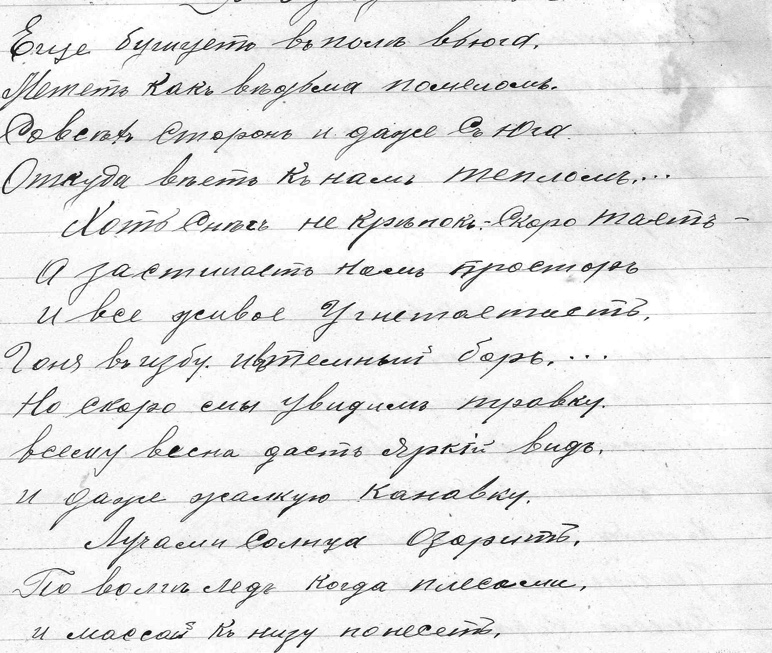 Еще бушуетъ въ полѣ вьюга,
Мететъ какъ вѣдьма помеломъ.
Со всѣхъ сторонъ и даже съ Юга
Откуда вѣетъ къ намъ тепломъ....
Хоть Снѣгъ не крѣпокъ: Скоро таетъ –
А застилаетъ намъ просторъ
и все живое Угнетаетъ,
Гоня въ избу. и въ темный боръ....
Но скоро мы увидимъ травку.
всему весна дастъ яркій видъ,
и даже жалкую канавку.
Лучами Солнца Озоритъ,
По волгѣ ледъ когда плесами,
и массой къ низу понесетъ,